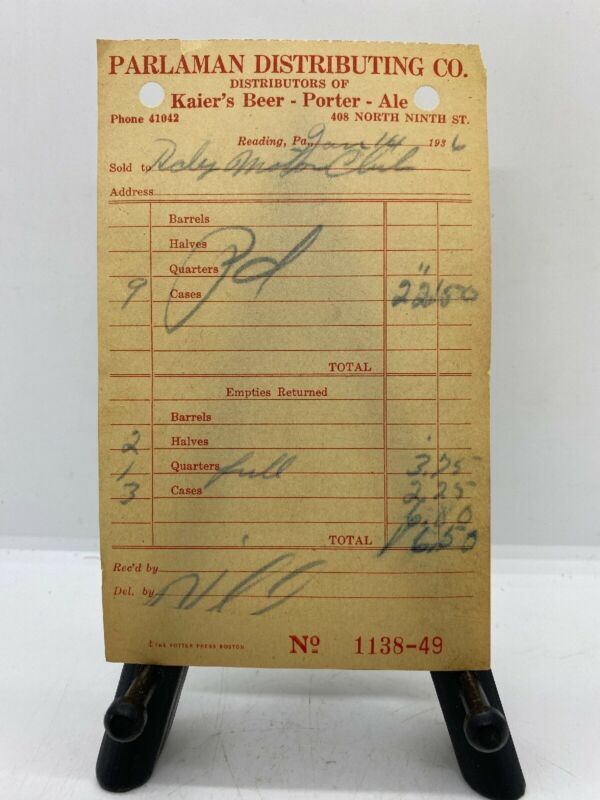 PARLAMAN DISTRIBUTING CO.
DISTRIBUTORS OF
Kaier's Beer - Porter - Ale
Phone 41042 408 NORTH NINTH ST.
Reading, Pa., Jan 14 1936
Sold to Rdg Motor Club
Address
Barrels
Halves
Quarters
9 Cases Pd 22.50
TOTAL
Empties Returned
Barrels
2 Halves
1 Quarters full 3.75
3 Cases 2.25
TOTAL 16.50
Rec'd by
Del. by
THE POTTER PRESS BOSTON
Nº 1138-49